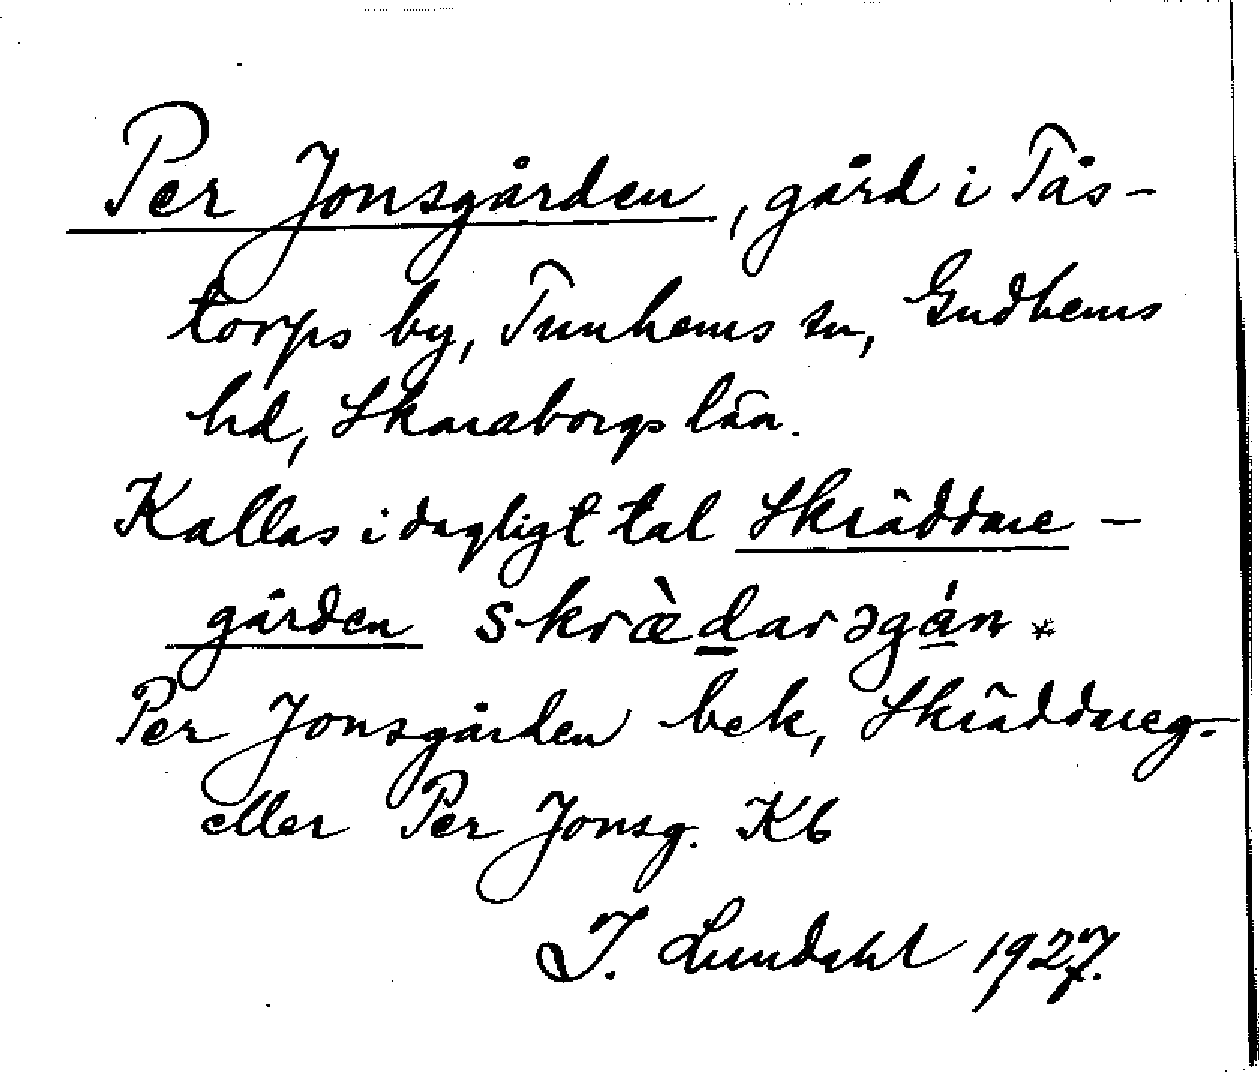 Per Jonsgården, gård i Tås-
torps by, Tunhems sn, Gudhems
hd, Skaraborgs län.
Kallas i dagligt tal Skräddare-
gården skræ̀darəgán *
Per Jonsgården bek, Skräddareg.
eller Per Jonsg. Kb
I. Lundahl 1927.